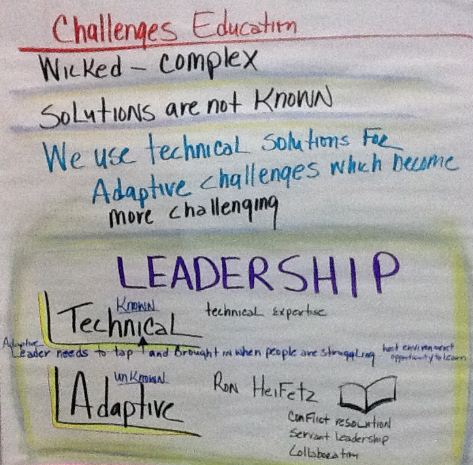 Challenges Education
Wicked - complex
Solutions are not Known
We use technical solutions for
Adaptive challenges which become
more challenging
LEADERSHIP
Known
Technical
technical Expertise
Adaptive
Leader needs to tap ↑ and brought in when people are struggling
environment
opportunity to learn
unKnown
Adaptive
Ron Heifetz
Conflict resolution
Servant Leadership
Collaboration